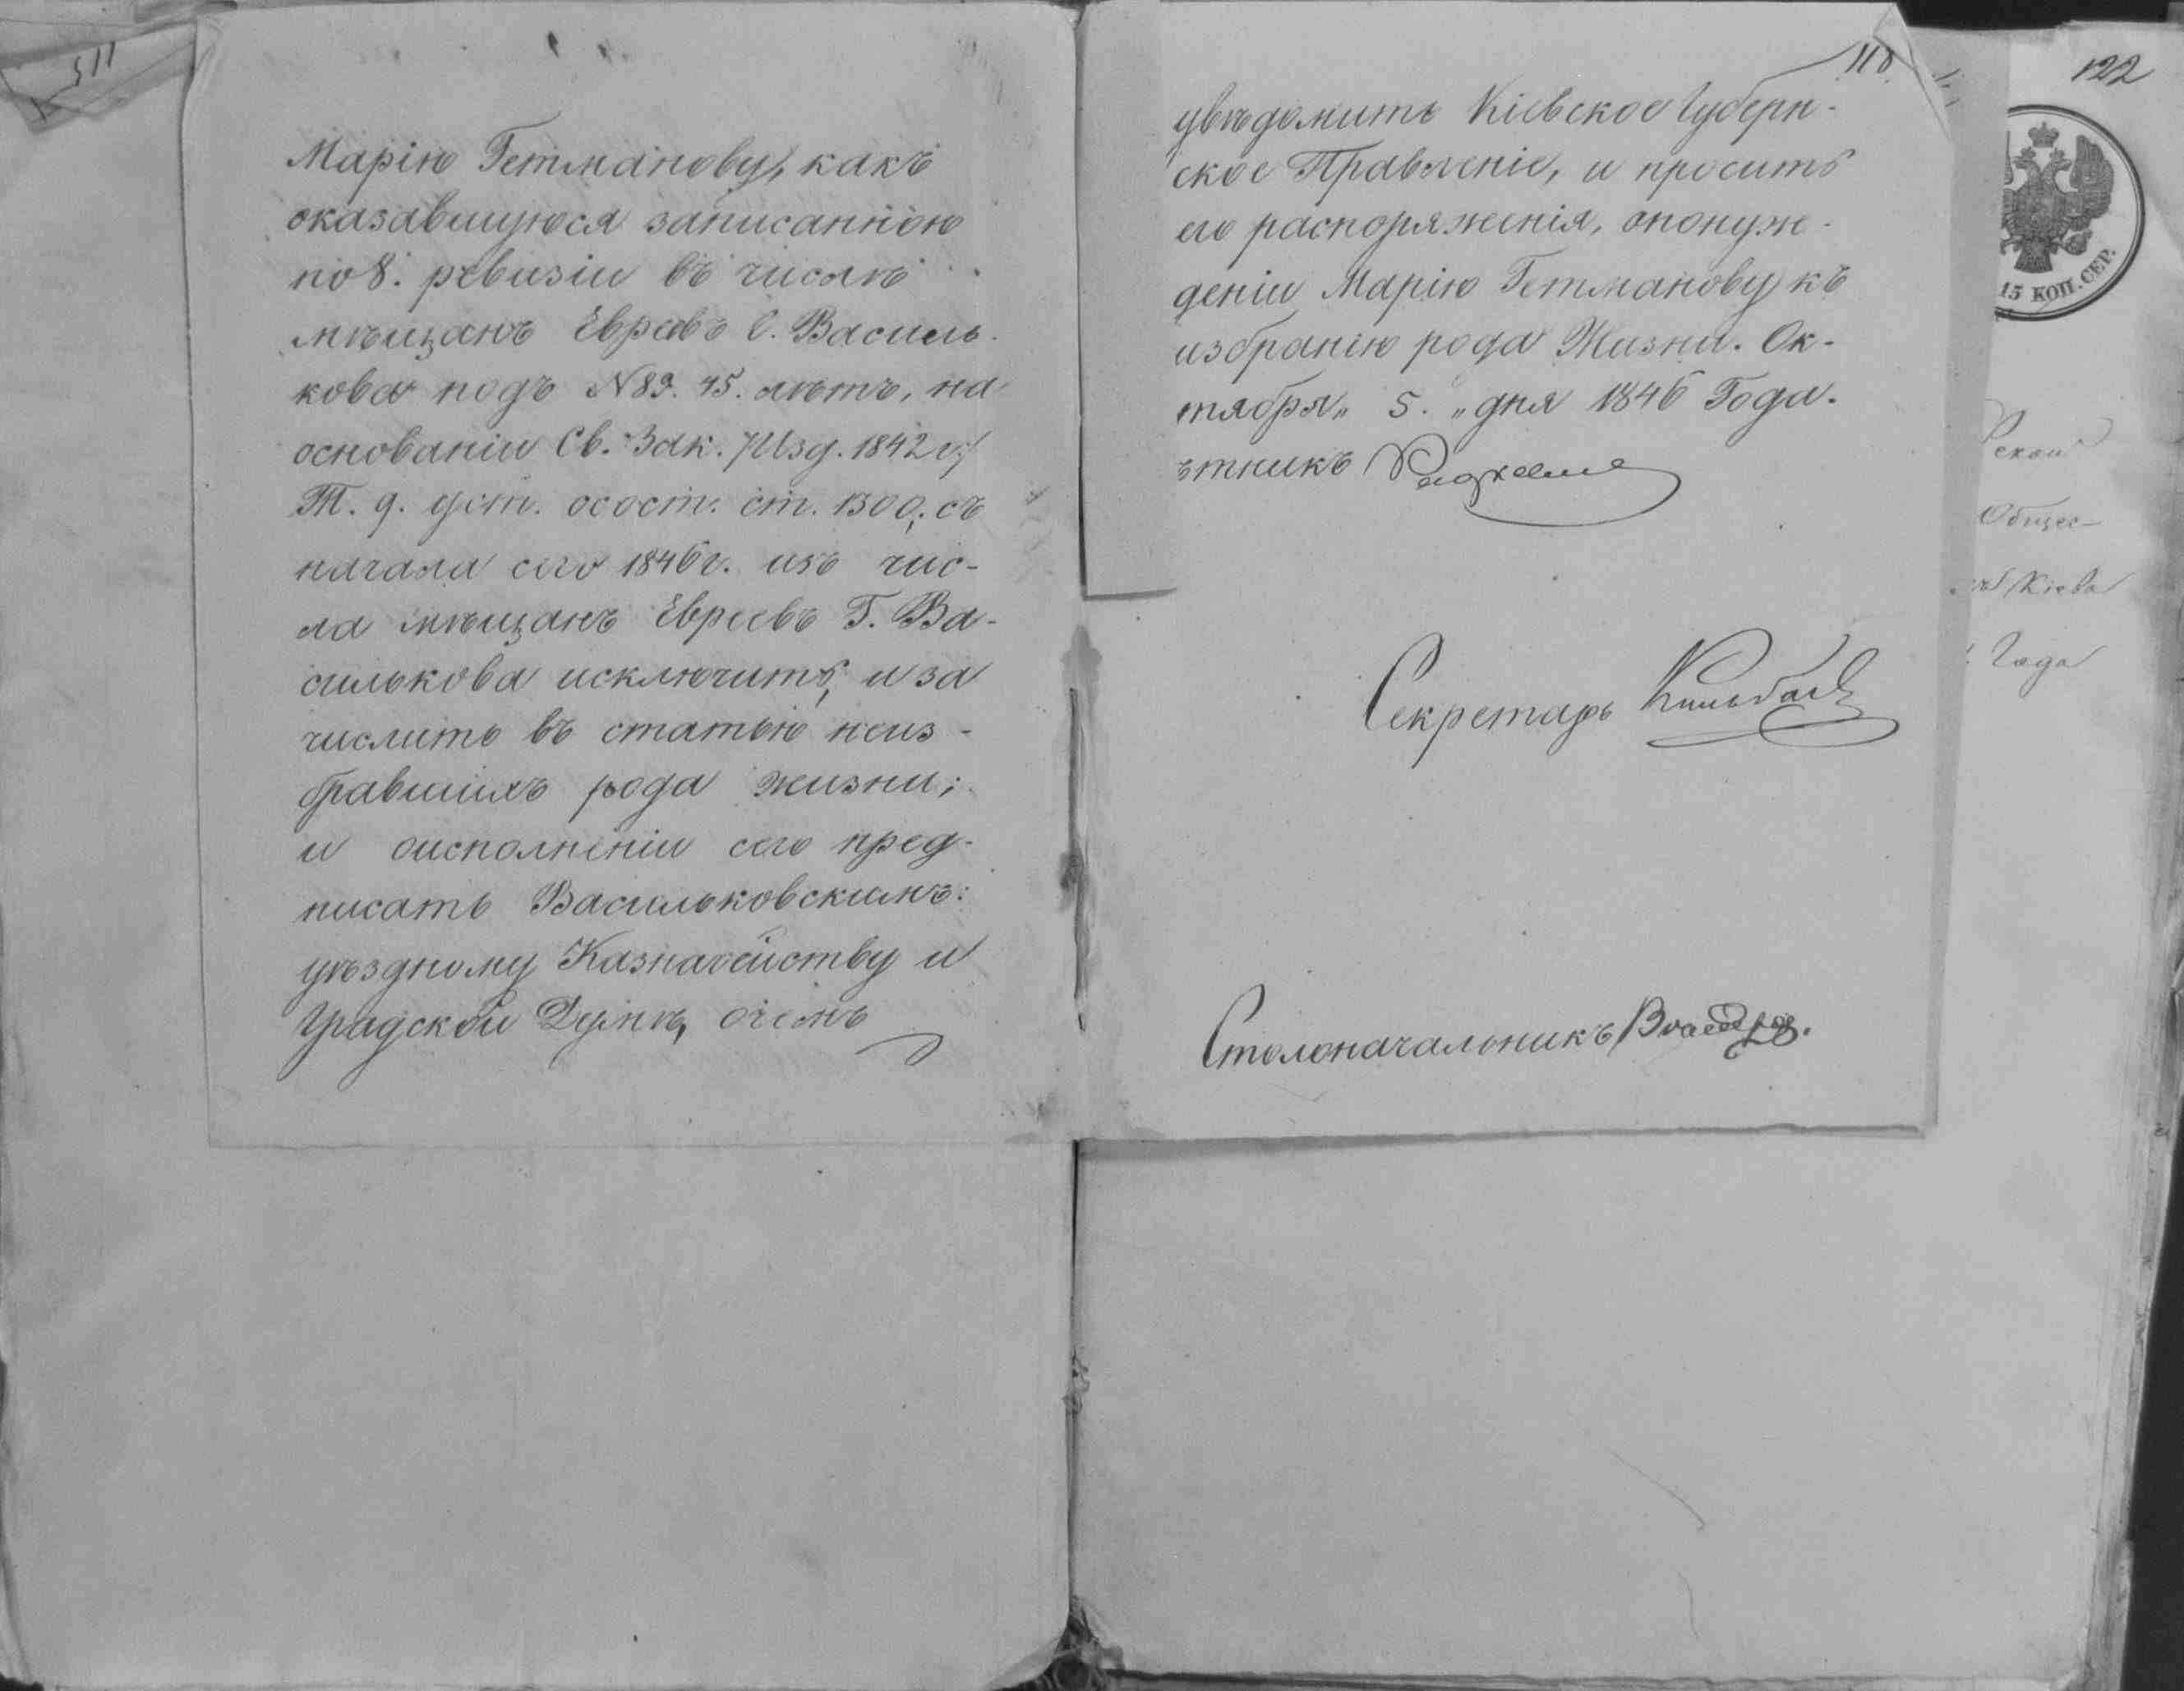 115
Марію Гетманову, какъ
оказавшуюся записанною
по 8. ревизіи въ числѣ
мѣщанъ Евреевъ Г. Василь-
кова подъ N 89. 45. лѣтъ, на
основаніи Св. Зак. /Изд. 1842 г:/
Т. 9. уст. осост. ст. 1300; съ
начала сего 1846 г. изъ чис-
ла мѣщанъ Евреевъ Г. Ва-
силькова исключить, и за
числить въ статью неиз-
бравшихъ рода жизни;
и оисполненіи сего пред-
писать Васильковскимъ:
уѣздному Казначейству и
Градской Думѣ, очемъ
118
увѣдомить Кіевское Губерн-
ское Правленіе, и просить
его распоряженія, опонуж-
деніи Марію Гетманову къ
избранію рода Жизни. Ок-
тября „ 5. „ дня 1846 Года.
ѣтникъ
Секретарь
Столоначальникъ
122
15 КОП. СЕР.
Общес-
Кіева
Года